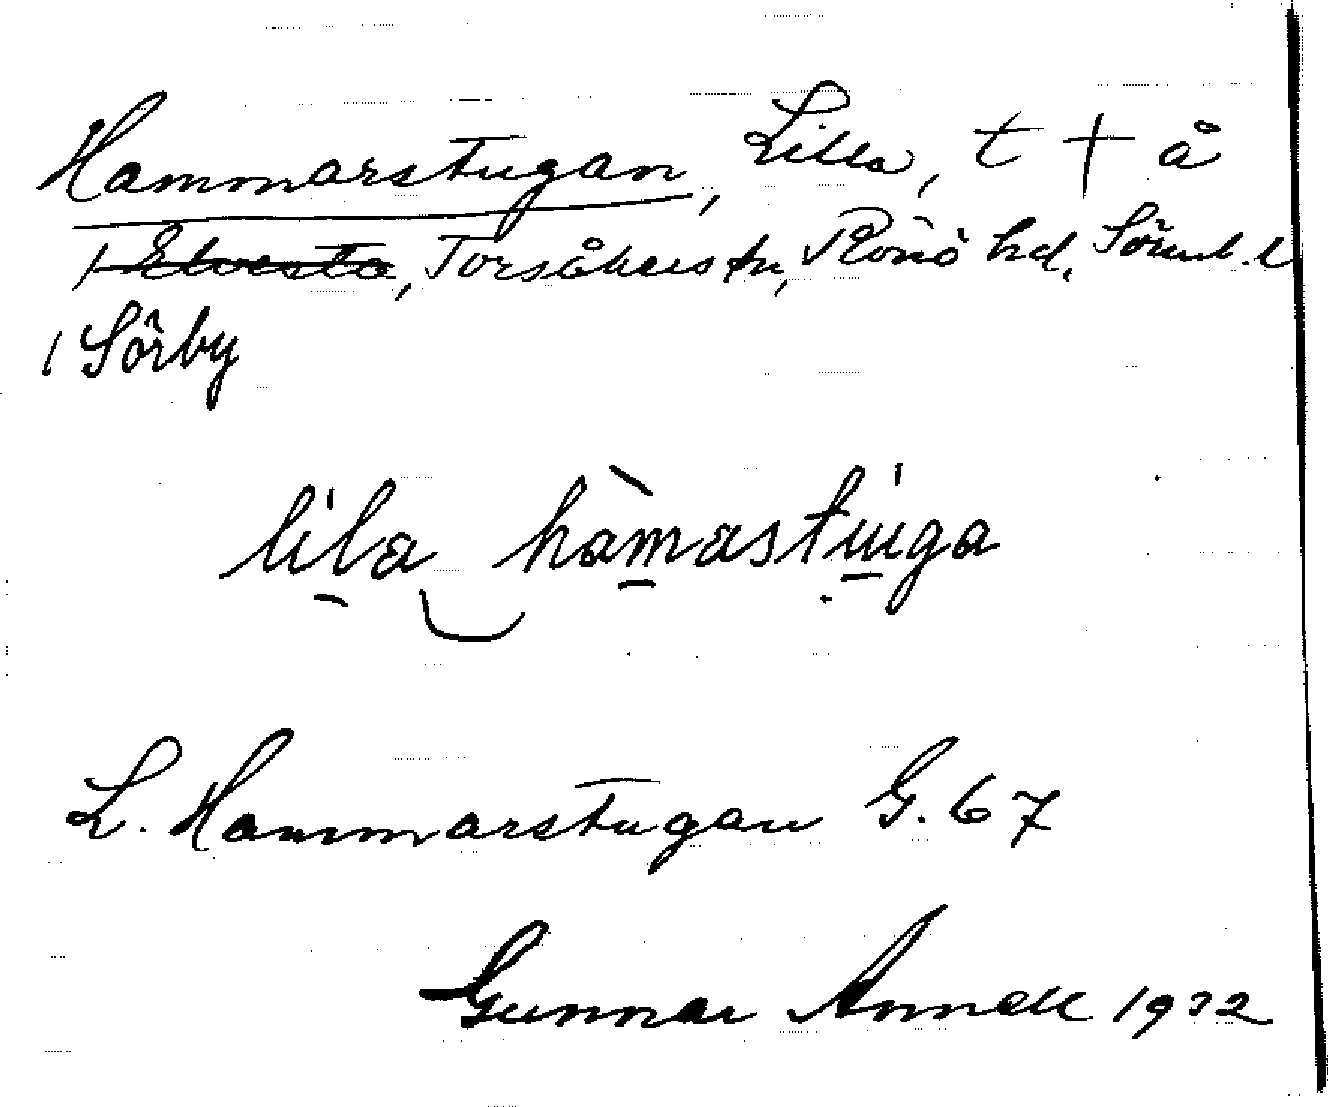 Hammarstugan, Lilla, t † å
i Elvesta, Torsåkers sn, Rönö hd, Söml. l
i Sörby
lila hàmastuga
L. Hammarstugan G. 67
Gunnar Annell 1932